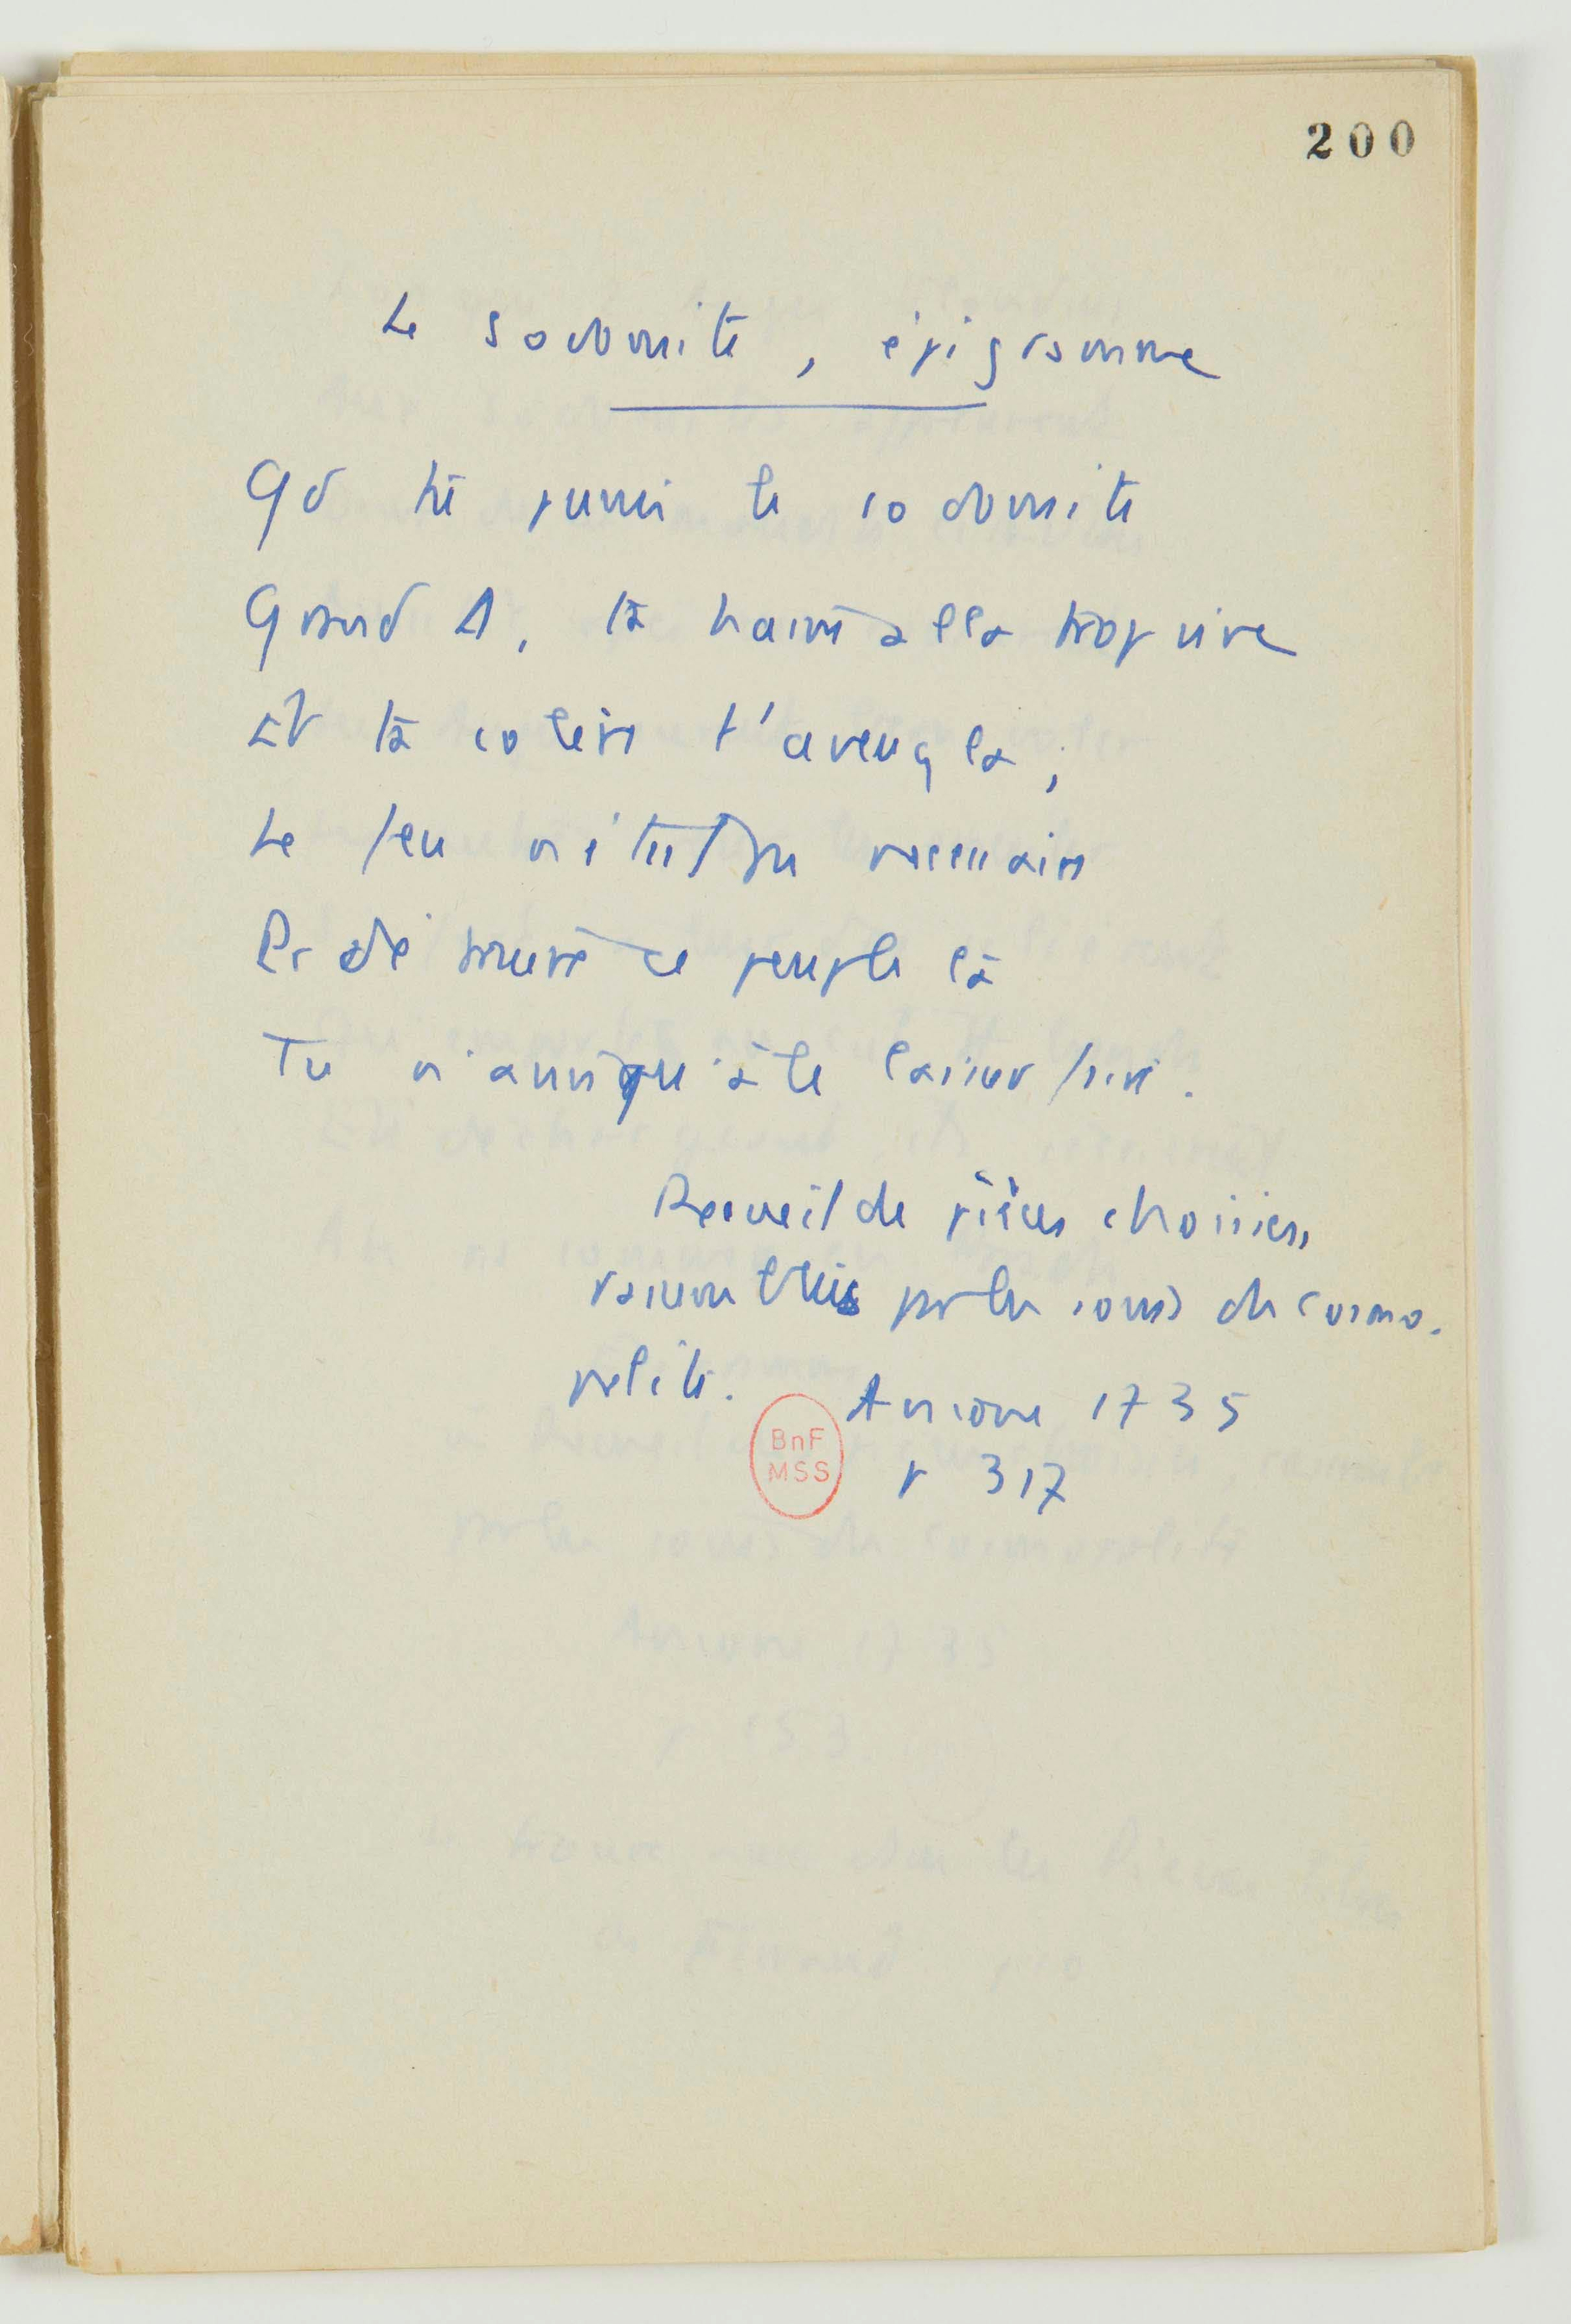 200
Le sodomite, épigramme
Qd tu punis le sodomite
Grand D, ta haine alla trop vite
Et ta colère t'aveugla ;
Le feu n'était pas nécessaire
Pr détruire ce peuple là
Tu n'avais qu'à le laisser faire.
Recueil de pièces choisies,
rassemblées par les soins du cosmo-
polite. Ancone 1735
BnF
MSS
p 317